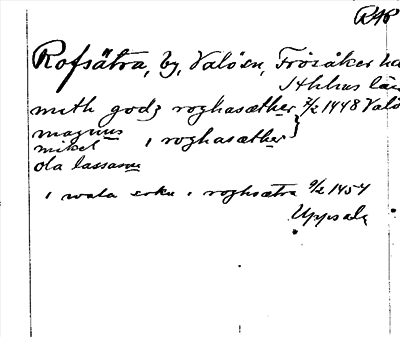 RAP
Rofsätra, by, Valö sn, Frösåker hd
Sthlms län
mith godz roghasæther 7/2 1448 Valö
magnus
mikel } i roghasæther
ola lassasun
i wala sokn i roghsætra 9/2 1454
Uppsala